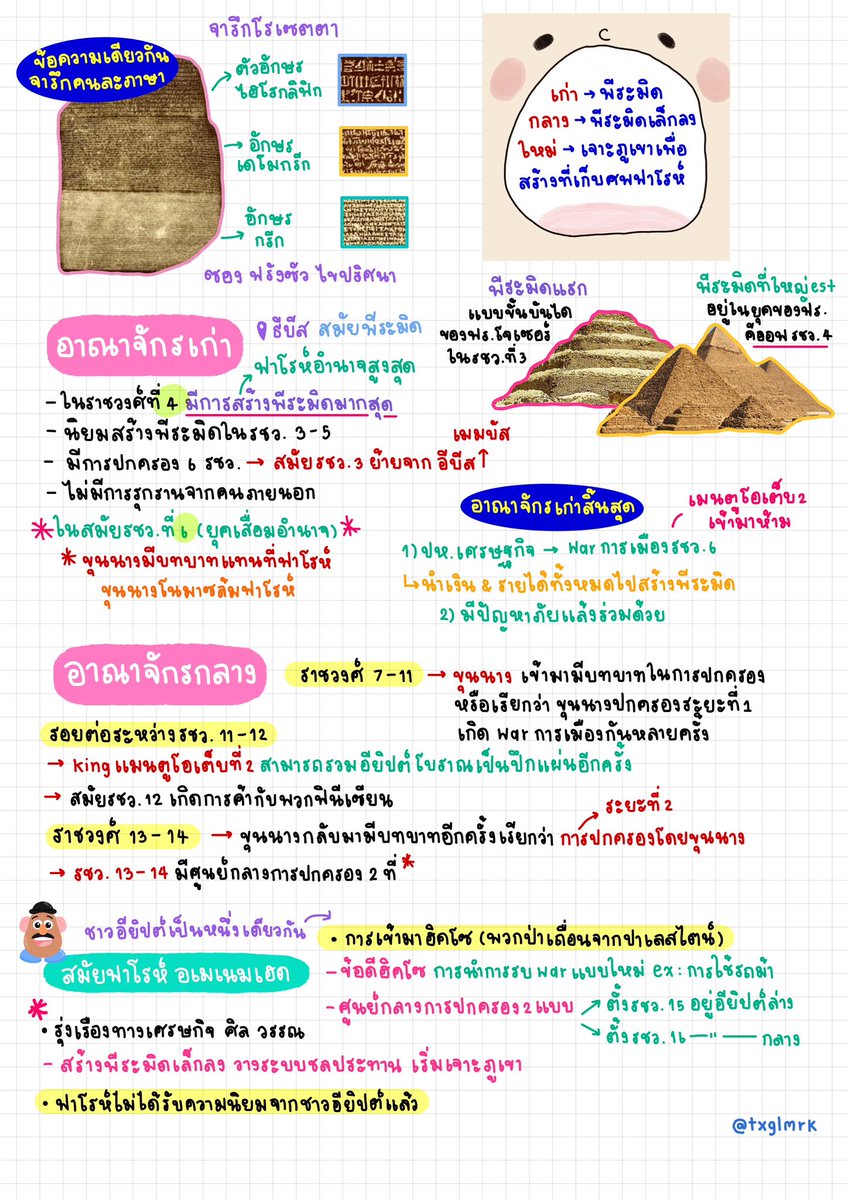 จารึกโรเซตตา
ข้อความเดียวกัน
จารึกคนละภาษา
ตัวอักษร
ไฮโรกลิฟิก
อักษร
เดโมกรีก
อักษร
กรีก
ซอง ฟรังซัว ไขปริศนา
เก่า → พีระมิด
กลาง → พีระมิดเล็กลง
ใหม่ → เจาะภูเขาเพื่อ
สร้างที่เก็บศพฟาโรห์
พีระมิดแรก
แบบขั้นบันได
ของฟร.โจเซอร์
ในรชว.ที่3
พีระมิดที่ใหญ่est
อยู่ในยุคของฟร.
คีออฟ รชว.4
อาณาจักรเก่า
ธีบีส สมัยพีระมิด
ฟาโรห์อำนาจสูงสุด
- ในราชวงศ์ที่ 4 มีการสร้างพีระมิดมากสุด
- นิยมสร้างพีระมิดในรชว. 3-5
เมมฟิส
- มีการปกครอง 6 รชว. → สมัยรชว.3 ย้ายจาก ธีบีส↑
- ไม่มีการรุกรานจากคนภายนอก
*ในสมัยรชว.ที่ 6 (ยุคเสื่อมอำนาจ)*
* ขุนนางมีบทบาทแทนที่ฟาโรห์
ขุนนางโนมาซล้มฟาโรห์
อาณาจักรเก่าสิ้นสุด
เมนตูโฮเต็บ2
เข้ามาห้าม
1) ปห.เศรษฐกิจ → war การเมืองรชว.6
↳นำเงิน & รายได้ทั้งหมดไปสร้างพีระมิด
2) มีปัญหาภัยแล้งร่วมด้วย
อาณาจักรกลาง
ราชวงศ์ 7-11 → ขุนนาง เข้ามามีบทบาทในการปกครอง
หรือเรียกว่า ขุนนางปกครองระยะที่1
เกิด war การเมืองกันหลายครั้ง
รอยต่อระหว่างรชว. 11-12
→ king แมนตูโฮเต็บที่2 สามารถรวมอียิปต์โบราณเป็นปึกแผ่นอีกครั้ง
→ สมัยรชว.12 เกิดการค้ากับพวกฟินีเซียน
ระยะที่2
ราชวงศ์ 13-14 → ขุนนางกลับมามีบทบาทอีกครั้งเรียกว่า การปกครองโดยขุนนาง
→ รชว. 13-14 มีศูนย์กลางการปกครอง 2 ที่*
ชาวอียิปต์เป็นหนึ่งเดียวกัน
• การเข้ามาฮิคโซ (พวกป่าเถื่อนจากปาเลสไตน์)
สมัยฟาโรห์ อเมเนมเฮด
-ข้อดีฮิคโซ การนำการรบ war แบบใหม่ ex: การใช้รถม้า
-ศูนย์กลางการปกครอง2แบบ → ตั้งรชว.15 อยู่อียิปต์ล่าง
→ ตั้งรชว.16 —"— กลาง
*
• รุ่งเรืองทางเศรษฐกิจ ศิล วรรณ
- สร้างพีระมิดเล็กลง วางระบบชลประทาน เริ่มเจาะภูเขา
• ฟาโรห์ไม่ได้รับความนิยมจากชาวอียิปต์แล้ว
@txglmrk